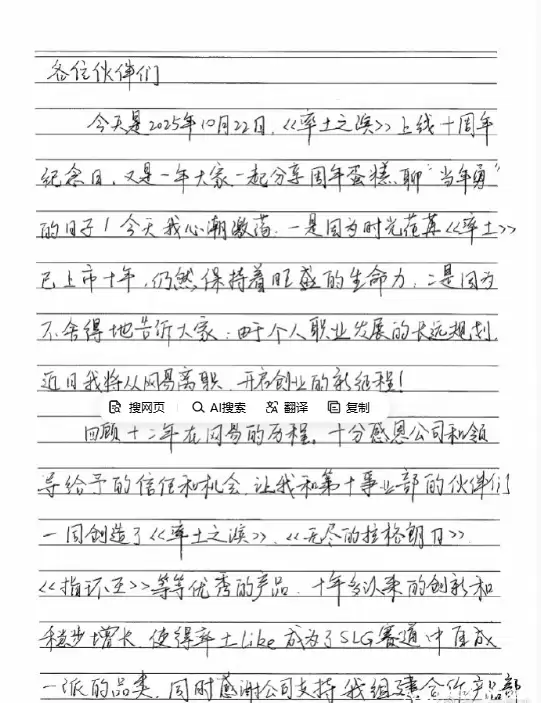 各位伙伴们
今天是2025年10月22日，《率土之滨》上线十周年
纪念日，又是一年大家一起分享周年蛋糕、聊“当年勇”
的日子！今天我心潮激荡，一是因为时光荏苒《率土》
已上市十年，仍然保持着旺盛的生命力，二是因为
不舍得地告诉大家：由于个人职业发展的长远规划，
近日我将从网易离职，开启创业的新征程！
搜网页 AI搜索 翻译 复制
回顾十二年在网易的历程，十分感恩公司和领
导给予的信任和机会，让我和第十事业部的伙伴们
一同创造了《率土之滨》、《无尽的拉格朗日》、
《指环王》等等优秀的产品，十年多以来的创新和
稳步增长，使得率土Like成为了SLG赛道中自成
一派的品类。同时感谢公司支持我组建合作产品部